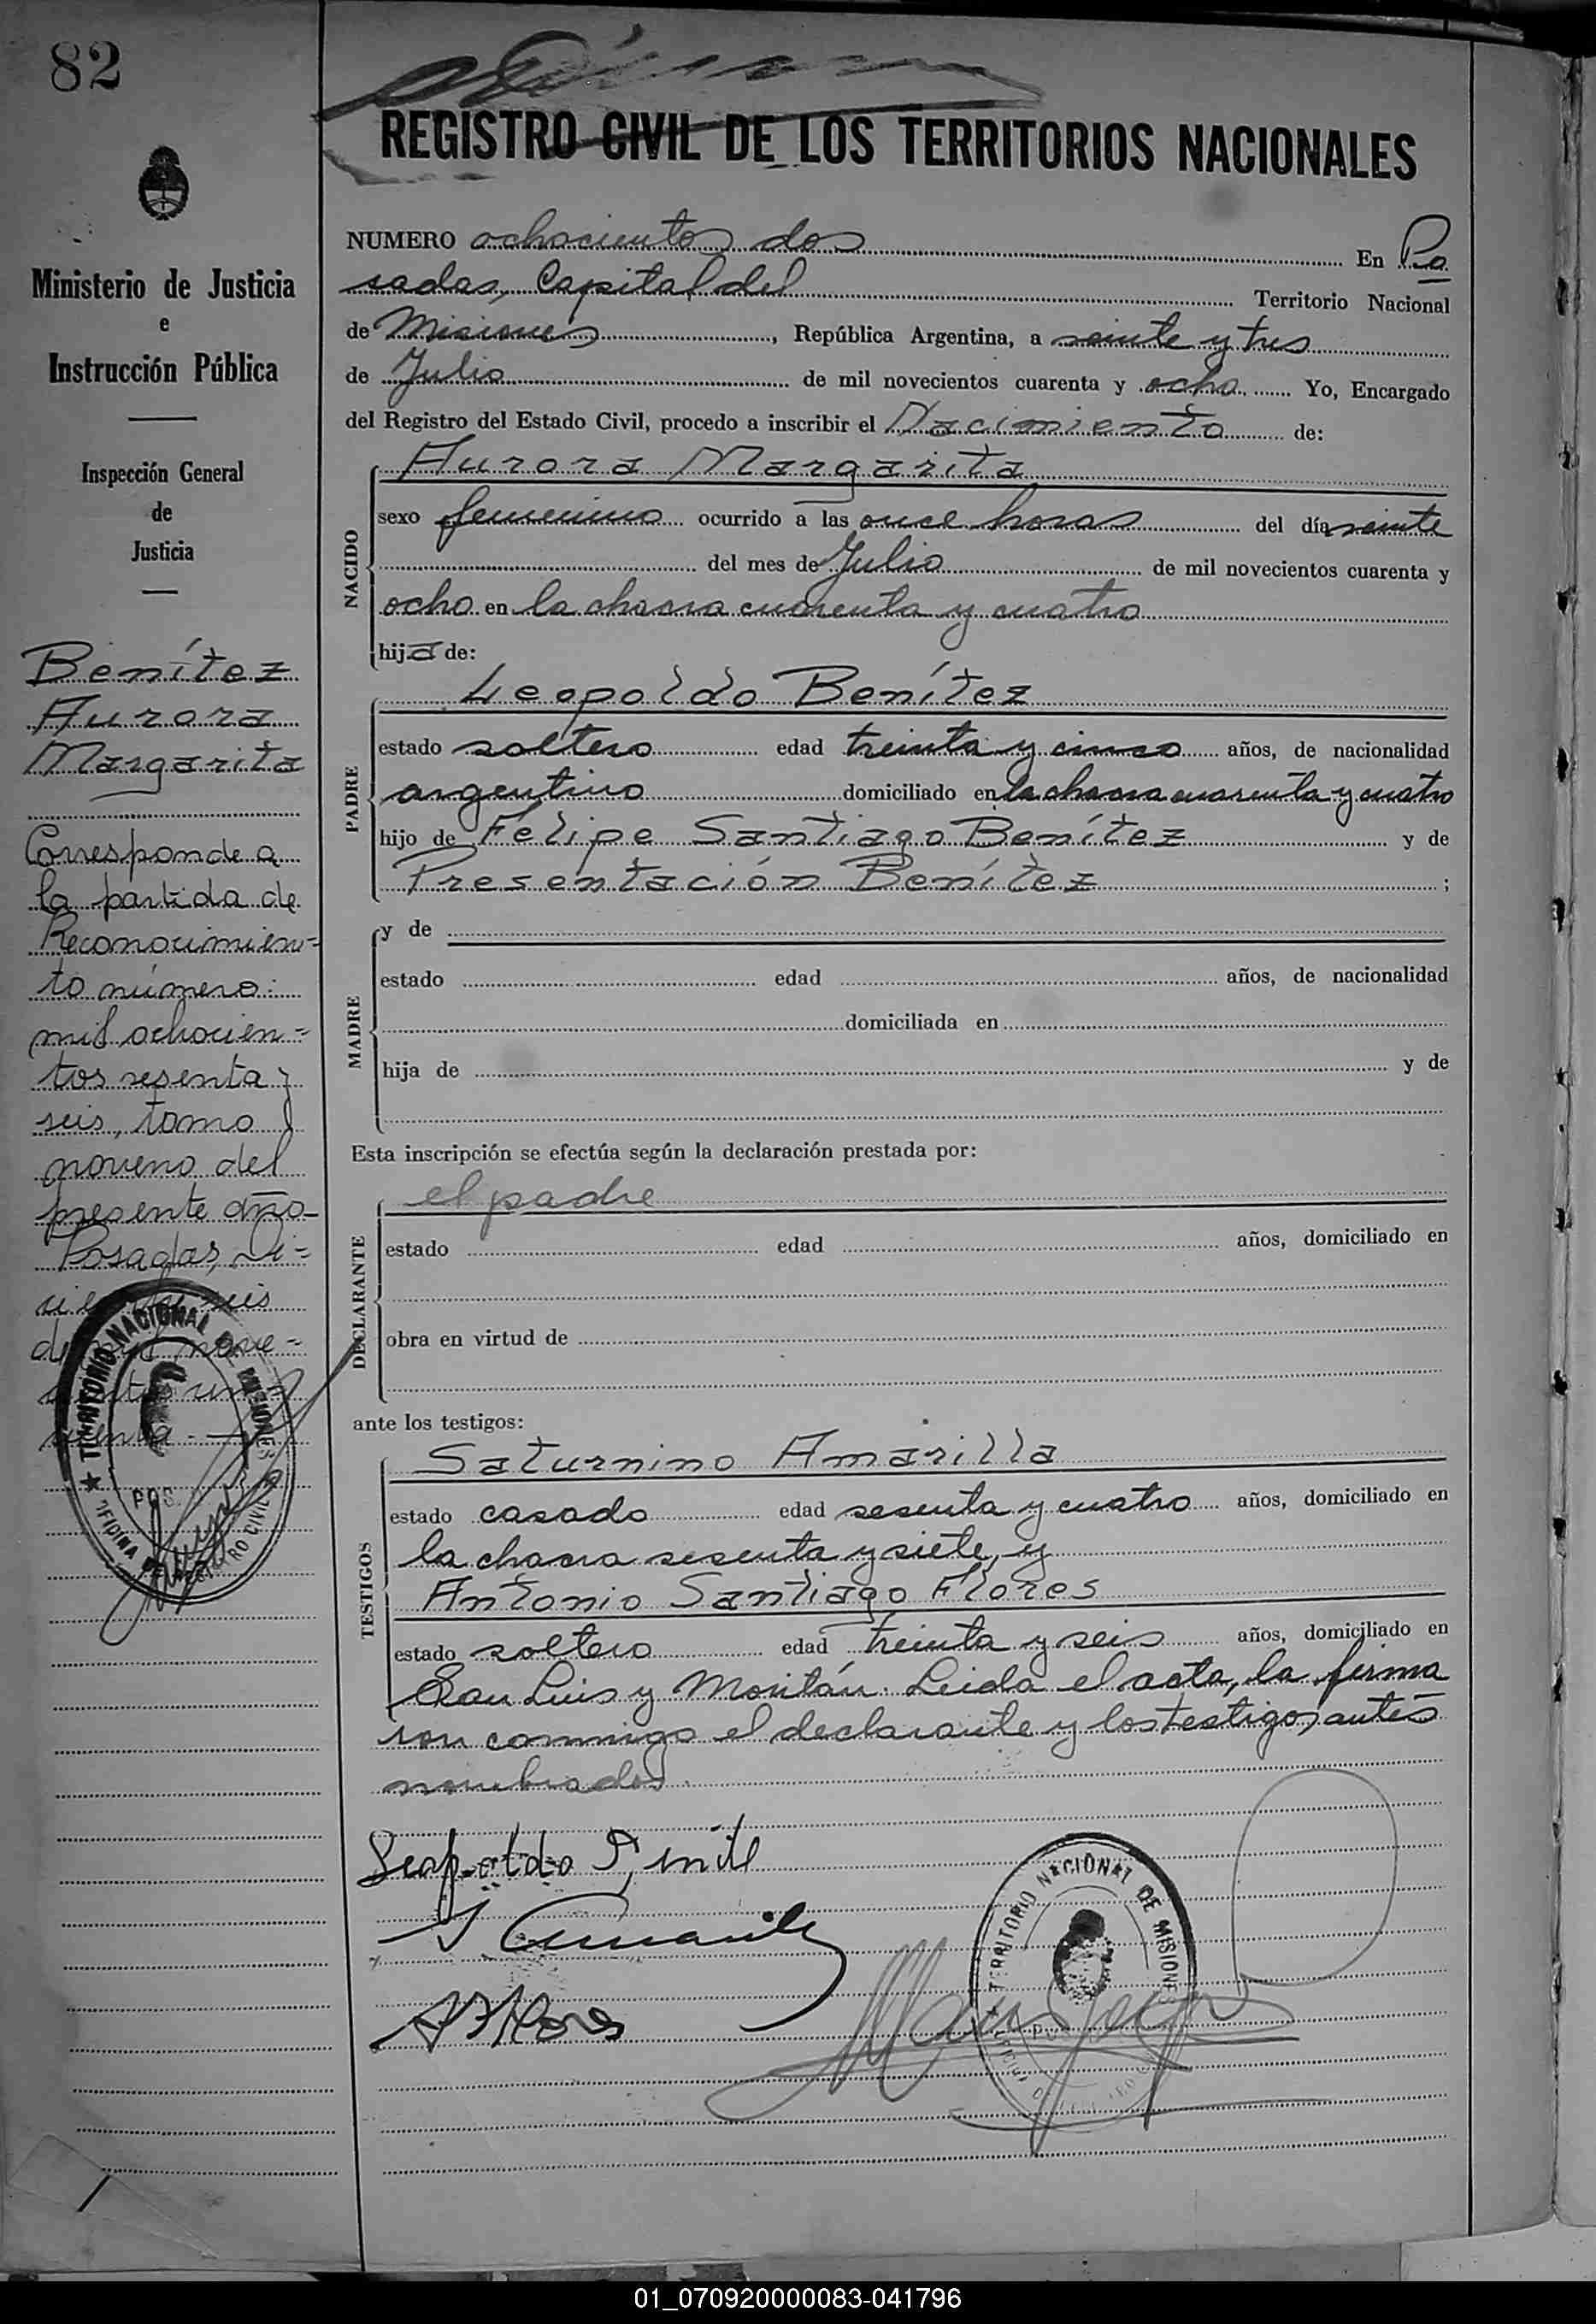 82
Ministerio de Justicia
e
Instrucción Pública
Inspección General
de
Justicia
Benítez
Aurora
Margarita
Corresponde a
la partida de
Reconocimien=
to número:
mil ochocien=
tos sesenta y
seis, tomo
noveno del
presente año_
Posadas, Di=
seis
de nove=
TERRITORIO NACIONAL DE MISIONES
POS
OFICINA REGISTRO CIVIL
REGISTRO CIVIL DE LOS TERRITORIOS NACIONALES
NUMERO ochocientos dos En Po
sadas, Capital del Territorio Nacional
de Misiones, República Argentina, a veinte y tres
de Julio de mil novecientos cuarenta y ocho Yo, Encargado
del Registro del Estado Civil, procedo a inscribir el Nacimiento de:
Aurora Margarita
NACIDO
sexo femenino ocurrido a las once horas del día veinte
del mes de Julio de mil novecientos cuarenta y
ocho en la chacra cuarenta y cuatro
hija de:
Leopoldo Benítez
PADRE
estado soltero edad treinta y cinco años, de nacionalidad
argentino domiciliado en la chacra cuarenta y cuatro
hijo de Felipe Santiago Benítez y de
Presentación Benítez ;
MADRE
y de
estado edad años, de nacionalidad
domiciliada en
hija de y de
Esta inscripción se efectúa según la declaración prestada por:
el padre
DECLARANTE
estado edad años, domiciliado en
obra en virtud de
ante los testigos:
Saturnino Amarilla
TESTIGOS
estado casado edad sesenta y cuatro años, domiciliado en
la chacra sesenta y siete, y
Antonio Santiago Flores
estado soltero edad treinta y seis años, domiciliado en
San Luis y Moritán. Leida el acta, la firma
ron conmigo el declarante y los testigos antes
nombrados.
Leopoldo
TERRITORIO NACIONAL DE MISIONES
01_070920000083-041796